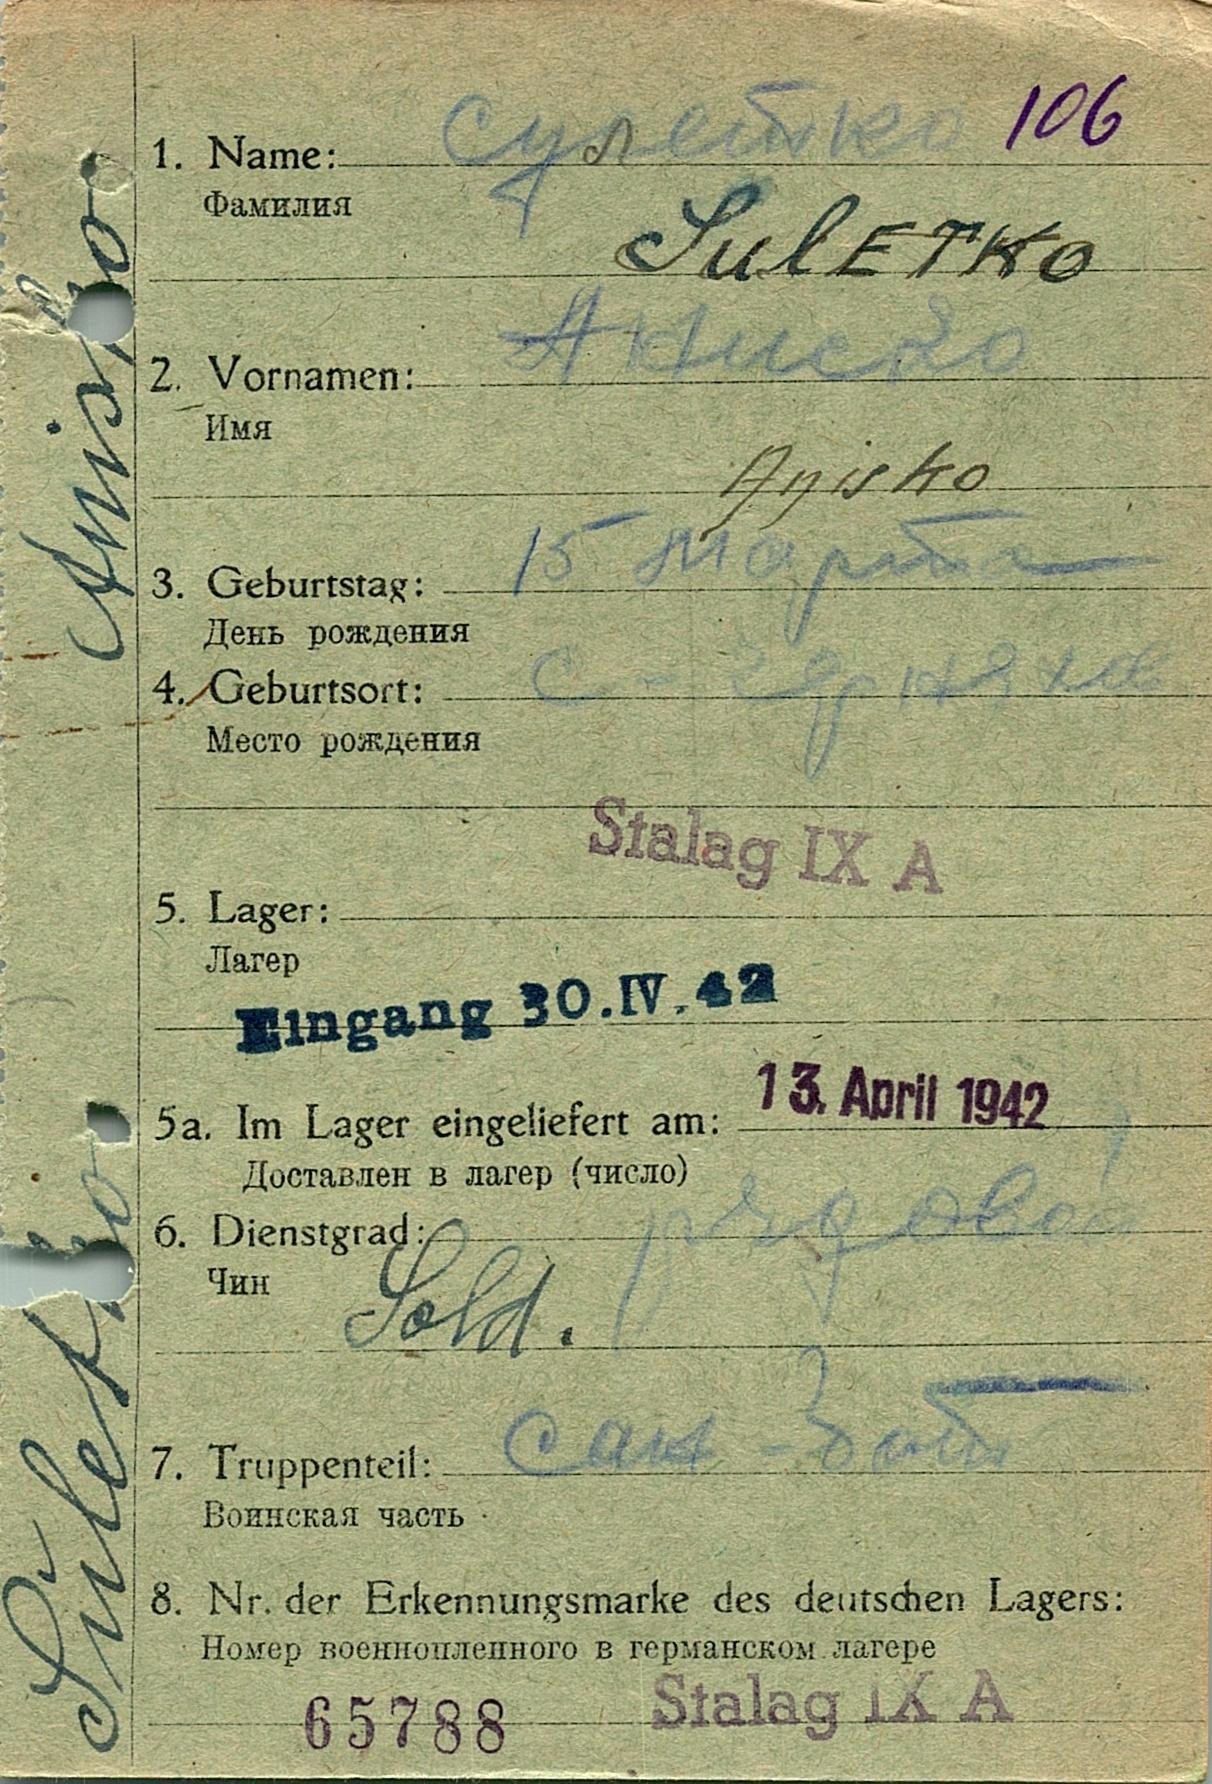 106
1. Name: Сулетко
Фамилия
SulETKO
2. Vornamen: Аниско
Имя
Anisko
3. Geburtstag: 15 марта
День рождения
4. Geburtsort: с -
Место рождения
Stalag IX A
5. Lager:
Лагер
Eingang 30.IV.42
5a. Im Lager eingeliefert am: 13. April 1942
Доставлен в лагер (число)
6. Dienstgrad: рядовой
Чин
Sold.
7. Truppenteil: сан - бат
Воинская часть
8. Nr. der Erkennungsmarke des deutschen Lagers:
Номер военнопленного в германском лагере
65788 Stalag IX A
Suletko Anisko